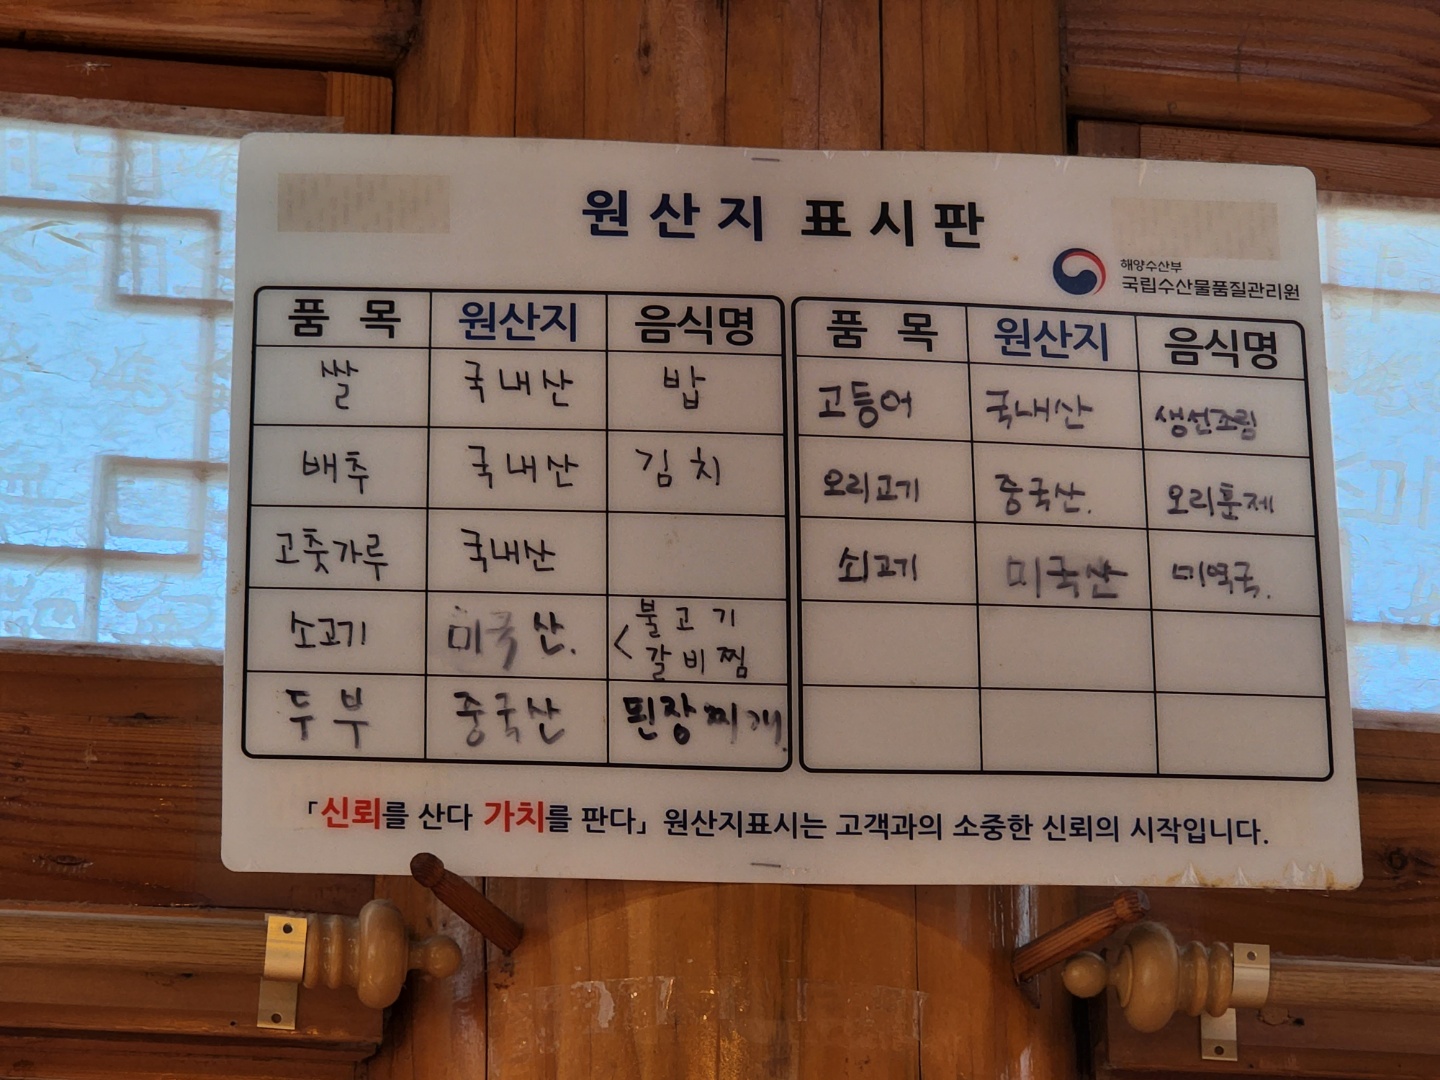 원산지 표시판
해양수산부
국립수산물품질관리원
품 목 원산지 음식명
쌀 국내산 밥
배추 국내산 김치
고춧가루 국내산
소고기 미국산. < 불고기
갈비찜
두부 중국산 된장찌개.
품 목 원산지 음식명
고등어 국내산 생선조림
오리고기 중국산. 오리훈제
쇠고기 미국산 미역국.
「신뢰를 산다 가치를 판다」 원산지표시는 고객과의 소중한 신뢰의 시작입니다.